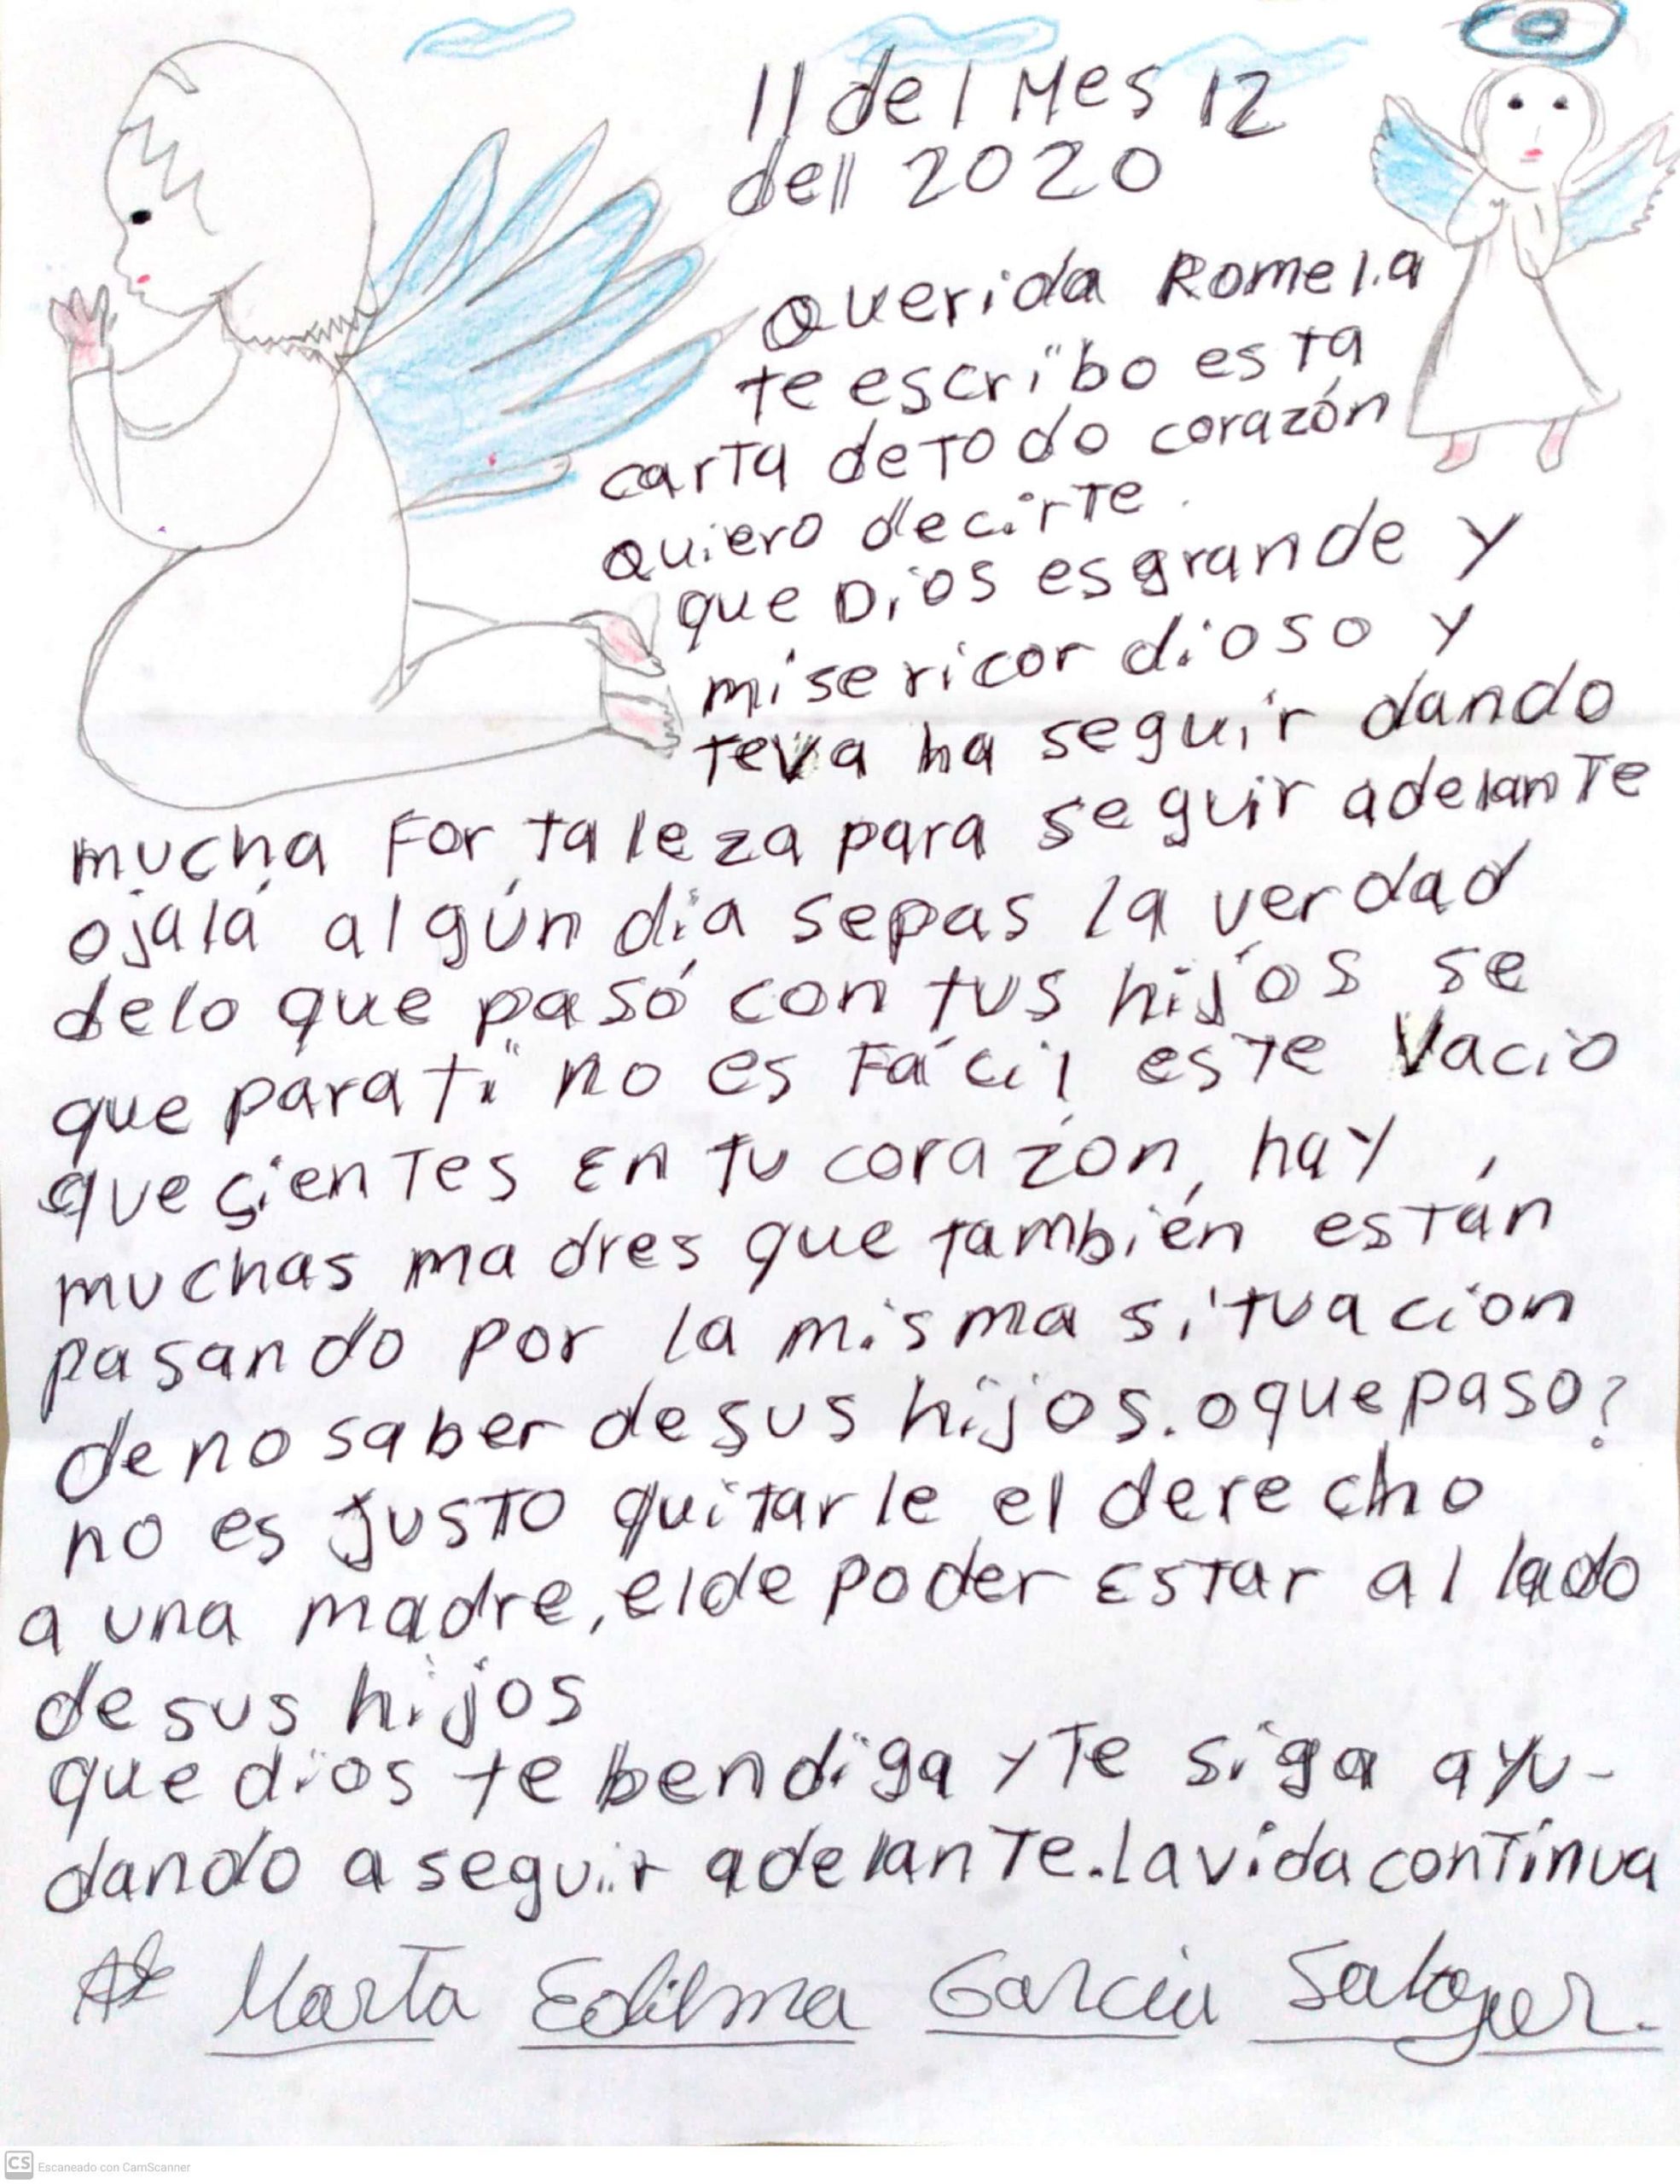 11 del Mes 12
dell 2020
Querida Romelia
te escribo esta
carta de todo corazón
quiero decirte
que Dios es grande y
misericordioso y
te va ha seguir dando
mucha Fortaleza para seguir adelante
ojalá algún día sepas la verdad
de lo que pasó con tus hijos se
que para ti no es Fácil este Vacio
que çientes En tu corazón, hay
muchas madres que también están
pasando por la misma situacion
de no saber de sus hijos. o que paso?
no es justo quitarle el derecho
a una madre, el de poder Estar al lado
de sus hijos
que dios te bendiga y te siga ayu-
dando a seguir adelante. la vida continua
Marta Edilma Garcia
CS Escaneado con CamScanner